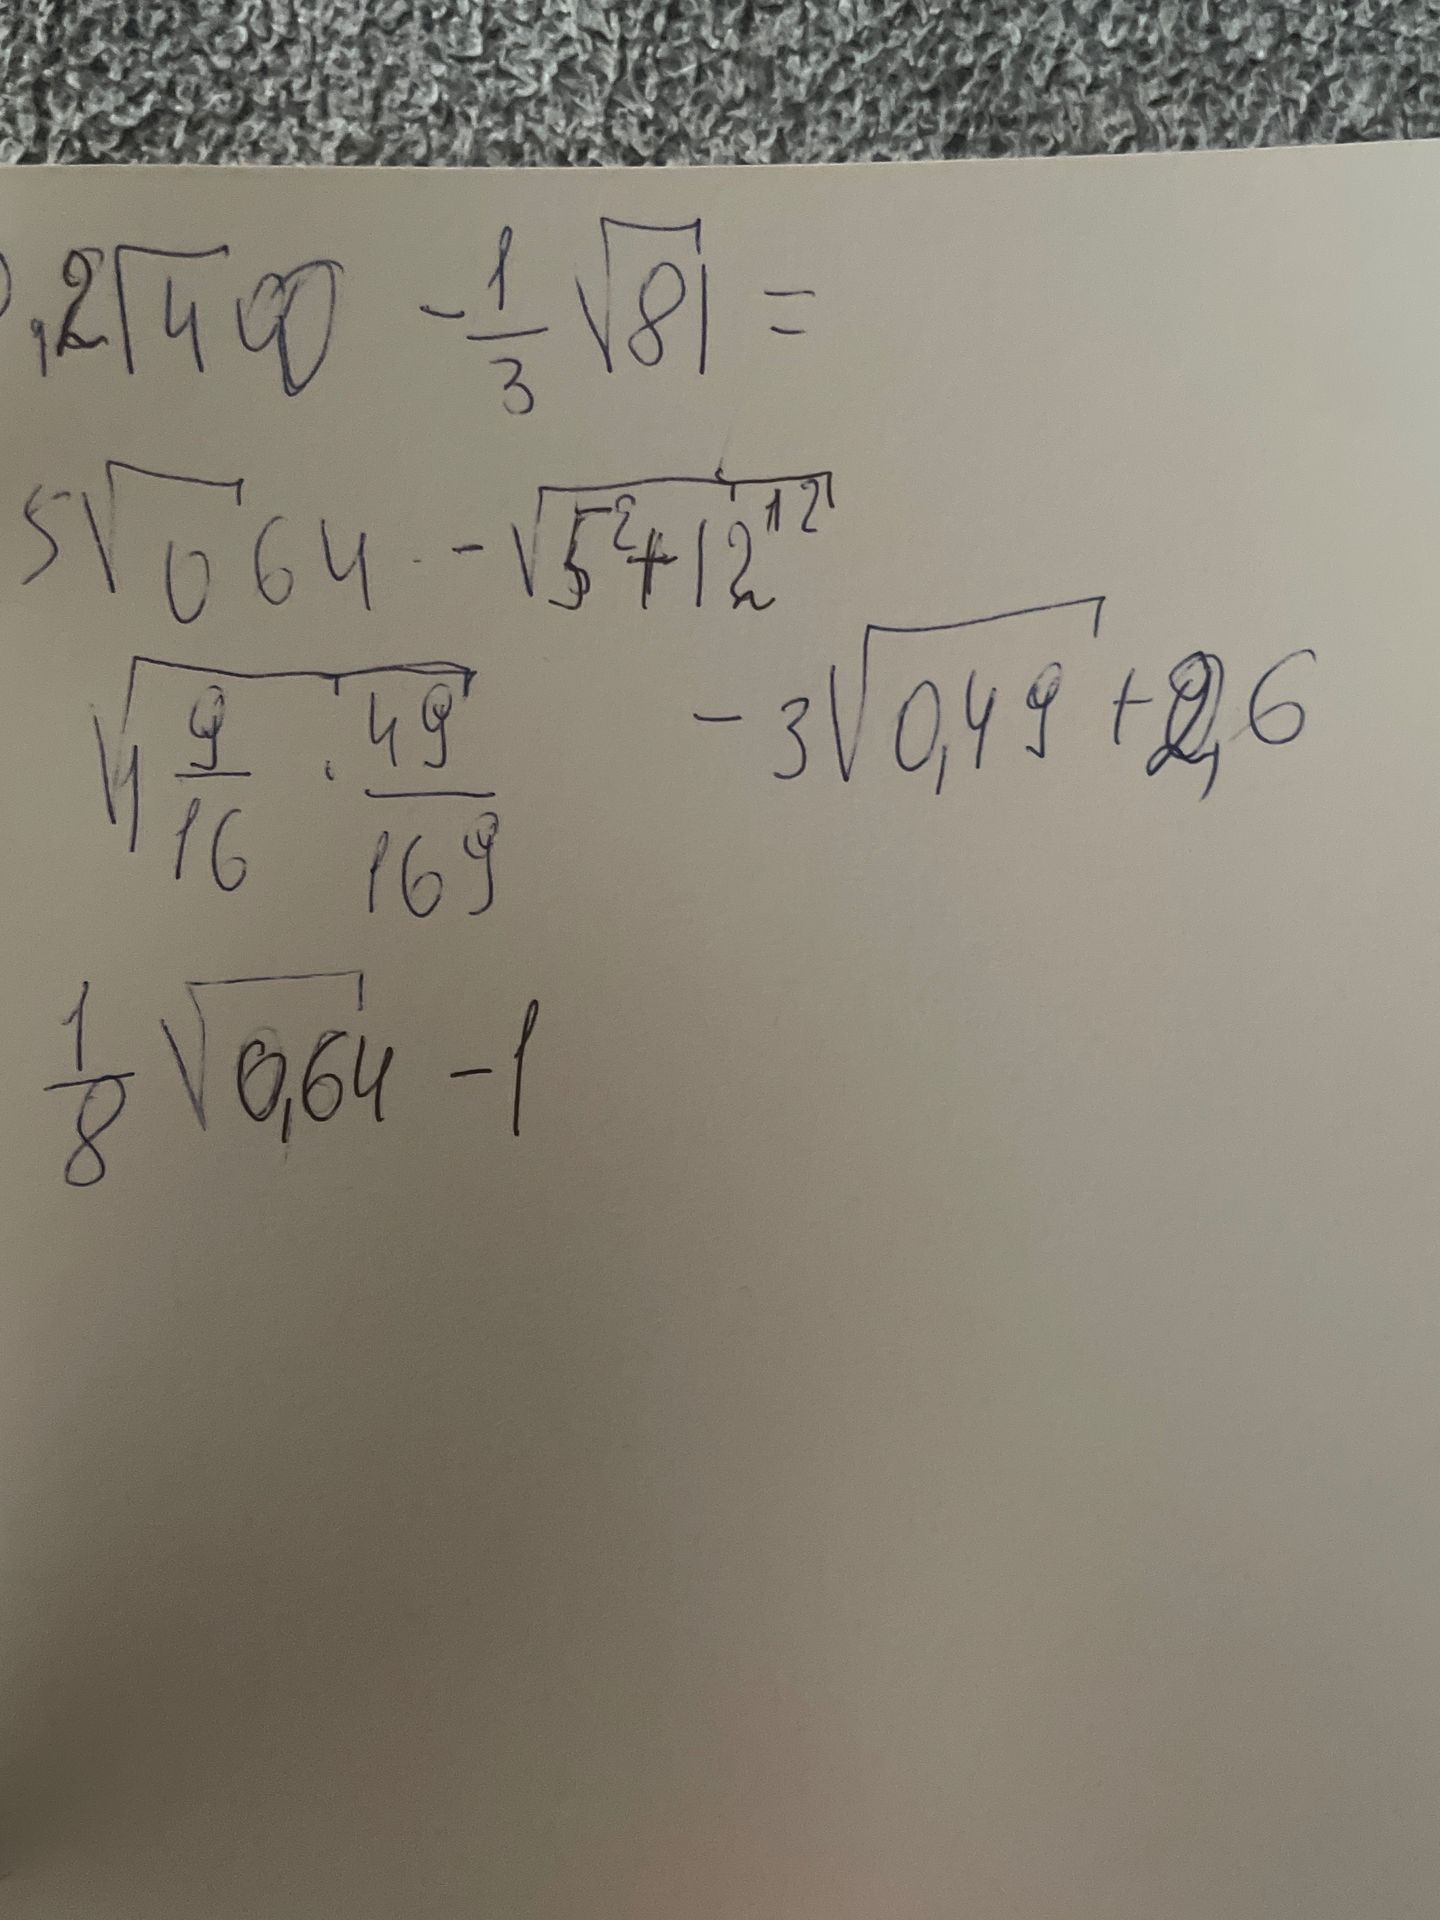 0,2√400 - 1/3 √81 =
5√064 - √5²+12¹²
√1 9/16 · 49/169 - 3√0,49 + 2,6
1/8 √0,64 - 1